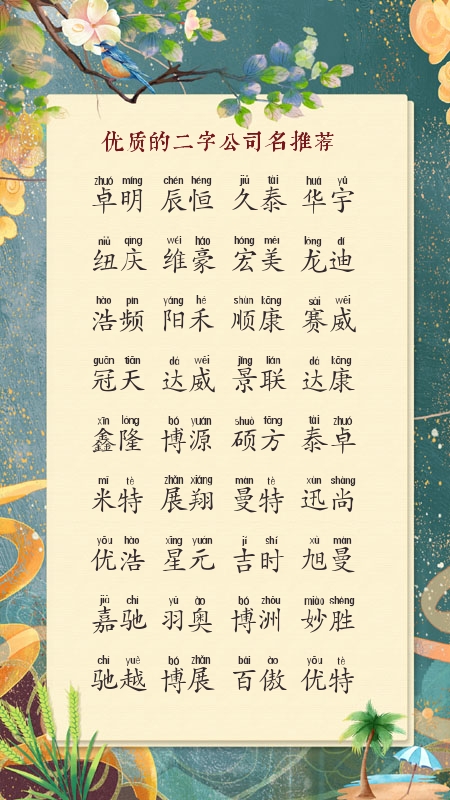 优质的二字公司名推荐
zhuó míng chén héng jiǔ tài huá yǔ
卓明 辰恒 久泰 华宇
niǔ qìng wéi háo hóng měi lóng dí
纽庆 维豪 宏美 龙迪
hào pín yáng hé shùn kāng sài wēi
浩频 阳禾 顺康 赛威
guān tiān dá wēi jǐng lián dá kāng
冠天 达威 景联 达康
xīn lóng bó yuán shuò fāng tài zhuó
鑫隆 博源 硕方 泰卓
mǐ tè zhǎn xiáng màn tè xùn shàng
米特 展翔 曼特 迅尚
yōu hào xīng yuán jí shí xù màn
优浩 星元 吉时 旭曼
jiā chí yǔ ào bó zhōu miào shèng
嘉驰 羽奥 博洲 妙胜
chí yuè bó zhǎn bǎi ào yōu tè
驰越 博展 百傲 优特